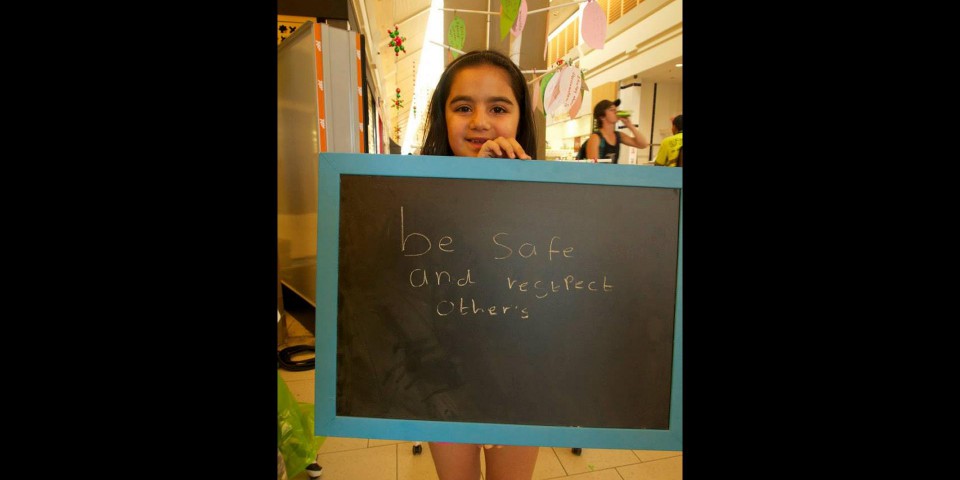 be safe
and regspect
other's